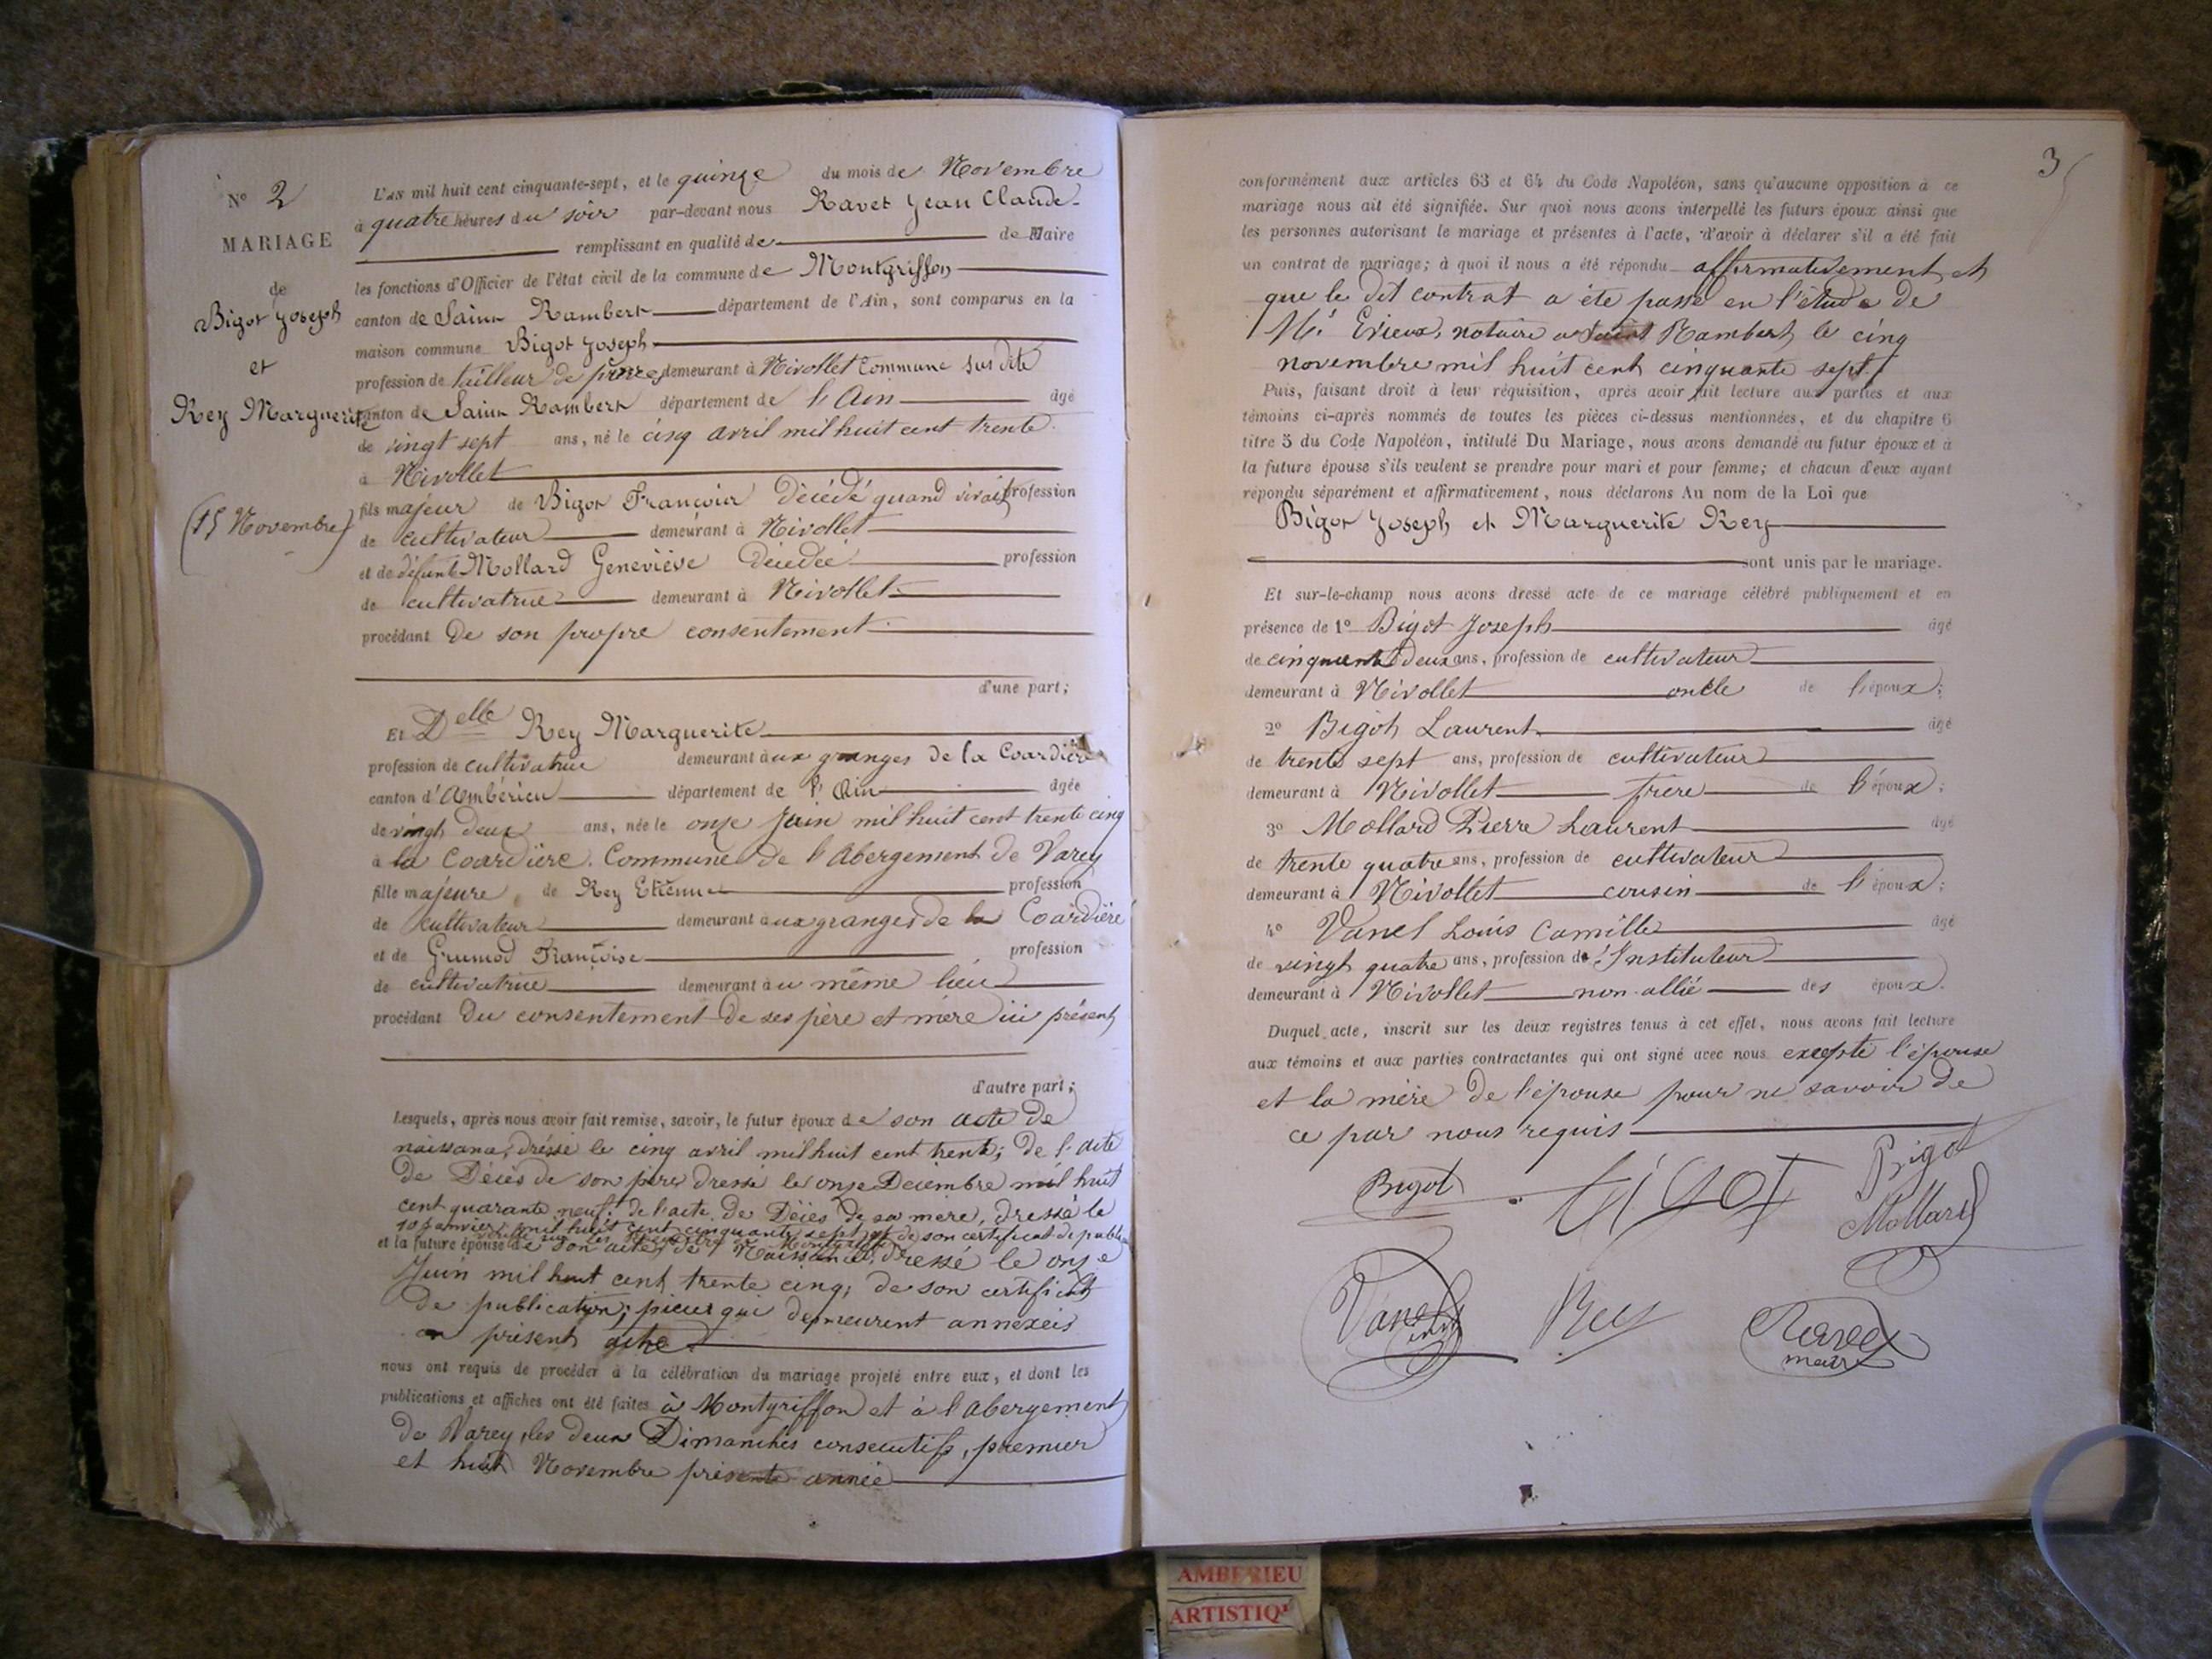 N° 2
MARIAGE
de
Bigot Joseph
et
Rey Marguerite
(15 Novembre)
L'an mil huit cent cinquante-sept, et le quinze du mois de Novembre
à quatre heures du soir par-devant nous Ravet Jean Claude
remplissant en qualité de de Maire
les fonctions d'Officier de l'état civil de la commune de Montgriffon
canton de Saint Rambert département de l'Ain, sont comparus en la
maison commune Bigot Joseph
profession de tailleur de pierres demeurant à Nivollet Commune sus dite
canton de Saint Rambert département de l'Ain âgé
de vingt sept ans, né le cinq avril mil huit cent trente
à Nivollet
fils majeur de Bigot François décédé quand vivait profession
de cultivateur demeurant à Nivollet
et de défunte Mollard Geneviève décédée profession
de cultivatrice demeurant à Nivollet
procédant de son propre consentement
d'une part;
Et Delle Rey Marguerite
profession de cultivatrice demeurant aux granges de la Coardière
canton d'Ambérieu département de l'Ain âgée
de vingt deux ans, née le onze Juin mil huit cent trente cinq
à la Coardière Commune de l'Abergement de Varey
fille majeure de Rey Etienne profession
de cultivateur demeurant aux granges de la Coardière
et de Grumod Françoise profession
de cultivatrice demeurant au même lieu
procédant du consentement de ses père et mère ici présent
d'autre part;
Lesquels, après nous avoir fait remise, savoir, le futur époux de son acte de
naissance, dressé le cinq avril mil huit cent trente; de l'acte
de Décès de son père dressé le onze Décembre mil huit
cent quarante neuf; de l'acte de Décès de sa mère, dressé le
10 Janvier mil huit cent cinquante sept et de son certificat de publi
et la future épouse de son acte de Naissance, dressé le onze
Juin mil huit cent trente cinq; de son certificat
de publication; pièces qui demeurent annexées
au présent acte
nous ont requis de procéder à la célébration du mariage projeté entre eux, et dont les
publications et affiches ont été faites à Montgriffon et à l'Abergement
de Varey, les deux Dimanches consecutifs, premier
et huit Novembre présente année
3
conformément aux articles 63 et 64 du Code Napoléon, sans qu'aucune opposition à ce
mariage nous ait été signifiée. Sur quoi nous avons interpellé les futurs époux ainsi que
les personnes autorisant le mariage et présentes à l'acte, d'avoir à déclarer s'il a été fait
un contrat de mariage; à quoi il nous a été répondu affirmativement et
que le dit contrat a été passé en l'étude de
Me notaire a Saint Rambert le cinq
novembre mil huit cent cinquante sept
Puis, faisant droit à leur réquisition, après avoir fait lecture aux parties et aux
témoins ci-après nommés de toutes les pièces ci-dessus mentionnées, et du chapitre 6
titre 5 du Code Napoléon, intitulé Du Mariage, nous avons demandé au futur époux et à
la future épouse s'ils veulent se prendre pour mari et pour femme; et chacun d'eux ayant
répondu séparément et affirmativement, nous déclarons Au nom de la Loi que
Bigot Joseph et Marguerite Rey
sont unis par le mariage.
Et sur-le-champ nous avons dressé acte de ce mariage célébré publiquement et en
présence de 1° Bigot Joseph âgé
de cinquante deux ans, profession de cultivateur
demeurant à Nivollet oncle de l'époux;
2° Bigot Laurent âgé
de trente sept ans, profession de cultivateur
demeurant à Nivollet frère de l'époux;
3° Mollard Pierre Laurent âgé
de trente quatre ans, profession de cultivateur
demeurant à Nivollet cousin de l'époux;
4° Vanel Louis Camille âgé
de vingt quatre ans, profession de Instituteur
demeurant à Nivollet non allié des époux.
Duquel acte, inscrit sur les deux registres tenus à cet effet, nous avons fait lecture
aux témoins et aux parties contractantes qui ont signé avec nous excepté l'épouse
et la mère de l'épouse pour ne savoir de
ce par nous requis
Bigot Bigot Bigot
Mollard
Vanel Rey Ravet
maire
AMBERIEU
ARTISTIQ